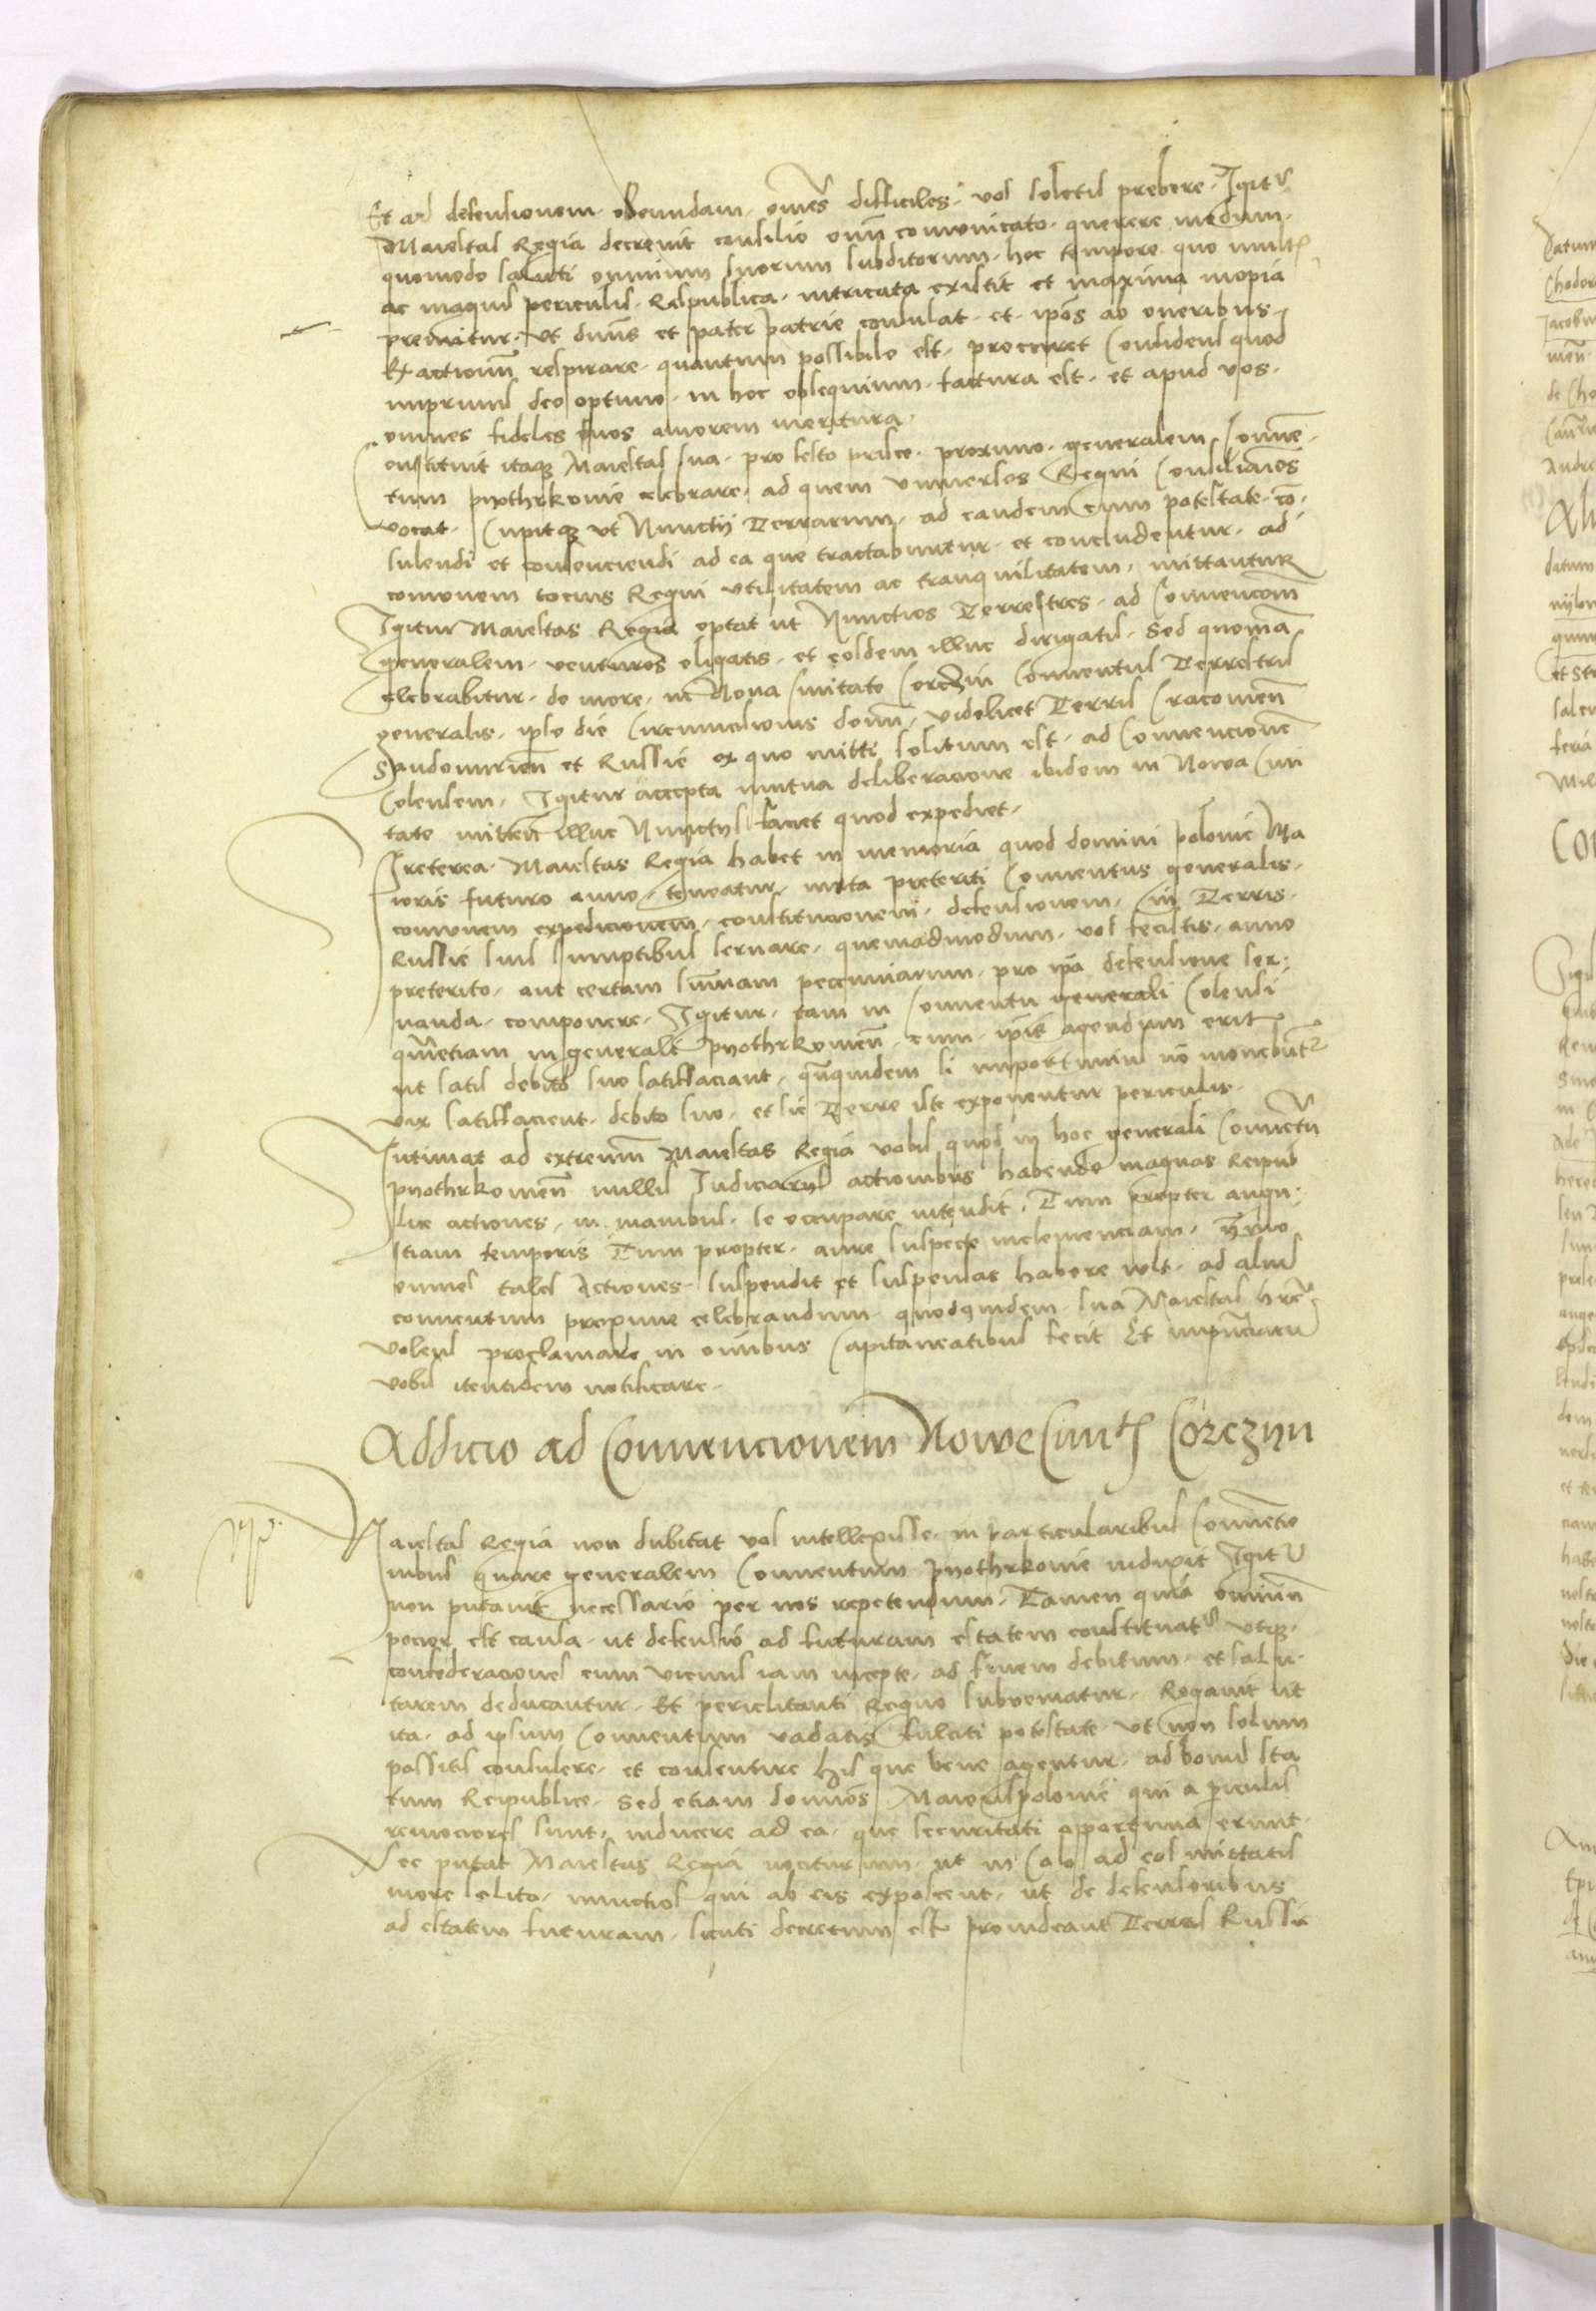 Et ad defensionem obeundam, om̃es difficiles vos soletis prebere. Igitᵉ
Maiestas Regia decrevit consilio omñ comunicato querere medium
quomodo saluti omnium suorum subditorum hoc tempore quo multis
ac magnis periculis Respublica intricata existit et maxima inopia
premitur. Ut dnũs et pater patrie consulat et ip̃os ab oneribus
Exactionũ respirare quantum possibile est procuret Confidens quod
inprimis deo optimo in hoc obsequium factura est et apud vos
omnes fideles suos amorem meritura.
Constituit itaqꝫ Maiestas sua pro festo prisce proximo generalem Conven
tum pyothrkovie celebrare ad quem universos Regni Consiliarios
vocat. Cupitqꝫ ut Nunctij Terrarum ad eandem cum potestate cõ
sulendi et consenciendi ad ea que tractabuntur et concludentur ad
comonem tocius Regni utilitatem ac tranquilitatem mittantur
Igitur Maiestas Regia optat ut Nunctios Terrestres ad Convencionẽ
generalem venturos eligatis et eosdem illuc dirigatis. Sed quoniã
celebrabitur de more in Nova Civitate Corczin Conventus Terrestris
generalis ipso die Circumcisionis domĩ videlicet Terris Cracovieñ
Sandomirieñ et Russie ex quo mitti solitum est ad Convencionẽ
Colensem. Igitur accepta mutua deliberacione ibidem in Nowa Civi
tate mitteñ illuc Nunctijs faciet quod expediet.
Preterea Maiestas Regia habet in memoria quod domini polonie Ma
ioris futuro anno teneatur iuxta preteriti Conventus generalis
comonem expedicionem constitucionem defensionem in Terris
Russie suis sumptibus servare quemadmodum vos fecistis anno
preterito aut certam sum̃am pecuniarum pro ip̃a defensione ser
vanda componere. Igitur tam in Conventu generali Colensi
qm̃etiam in generali pyothrkovieñ cum ip̃is agendum erit
ut satis debito suo satisfaciant quãquidem si importunius nõ monebuntᵉ
vix satisfacient debito suo et sic Terre iste exponentur periculis.
Intimat ad extremũ Maiestas Regia vobis quod in hoc generali Convẽtu
pyothrkovieñ nullis Iudiciarijs actionibus habendo magnas Reipub
lice actiones in manibus se occupare intendit. Tum propter angu
stiam temporis Tum propter aure suspecte inclemenciam
omnes tales Actiones suspendit et suspensas habere vult ad aliud
conventum proxime celebrandum quodquidem sua Maiestas
volens proclamare in om̃ibus Capitaneatibus fecit Et
vobis itentidem notificare.
Addicio ad Convencionem Nowe Civitᵉ Corczyn
Maiestas Regia non dubitat vos intellexisse in particularibus Convẽtio
nibus quare generalem Conventum pyothrkovie indixit Igitᵉ
non putavit necessario per nos repetendum. Tamen quia omniũ
pocior est causa ut defensio ad futuram estatem constituatᵉ utqꝫ
confederaciones cum vicinis iam incepte ad finem debitum et salu
tarem deducantur. Et periclitanti Regno subveniatur. Rogavit ut
ita ad ipsum Conventum vadatis fulciti potestate ut non solum
possitis consulere et consentire his que bene agentur ad bonũ sta
tum Reipublice. Sed etiam domĩos Maiorispolonie qui a p̃iculis
remociores sunt inducere ad ea que securitati oportuna erunt.
Nec putat Maiestas Regia nociturum ut in Colo ad eos mittatis
more solito nunctios qui ab eis exposcent ut de defensoribus
ad estatem futuram sicuti decretum est provideant Terris Russie